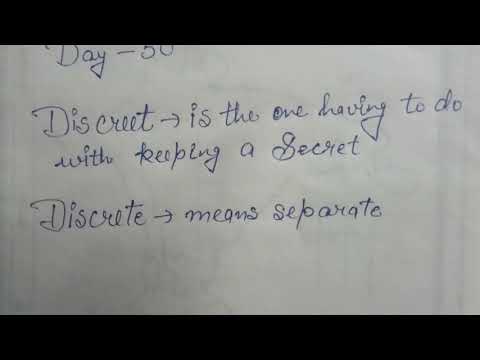 Day – 50
Discreet → is the one having to do
with keeping a Secret
Discrete → means separate